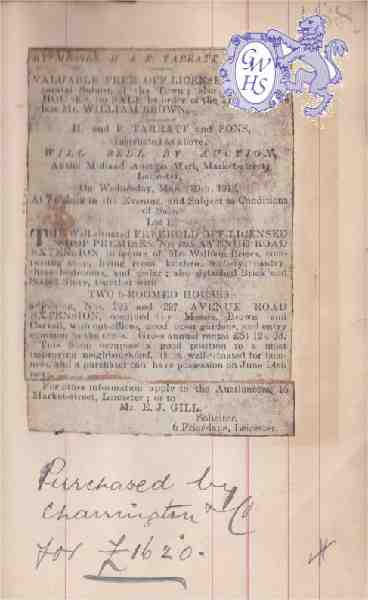 By Messrs. H. & F. TARRATT
VALUABLE FREE OFF-LICENSE
Suburb of the Town; also
HOUSES, for SALE by order of the
late Mr. WILLIAM BROWN.
H. and F. TARRATT and SONS,
Instructed as above,
WILL SELL BY AUCTION,
At the Midland Auction Mart, Market-street,
Leicester,
On Wednesday, May
At 7 o'clock in the Evening, and Subject to Conditions
of Sale:
Lot 1.
THE Well-situated FREEHOLD OFF-LICENSED
SHOP PREMISES, No. AVENUE ROAD
EXTENSION, Mr. William Brown,
shop, living room, kitchen, scullery, pantry,
three bedrooms, and ; also detached Brick and
Slated Store, together with
TWO 6-ROOMED HOUSES
adjoining, Nos. and 297 AVENUE ROAD
EXTENSION, occupied by Messrs. Brown and
with out-offices, good open gardens, and entry
common to the Gross annual rental £51 12s. 3d.
This Shop occupies a good position in a most
neighbourhood, it is well-situated for
and a purchaser can have possession on June 24th
next.
For other information apply to the Auctioneers, 16
Market-street, Leicester; or to
Mr. E. J. GILL,
Solicitor,
6 Friar-lane, Leicester.
Purchased by
Charrington & Co
for £1620.
GWHS